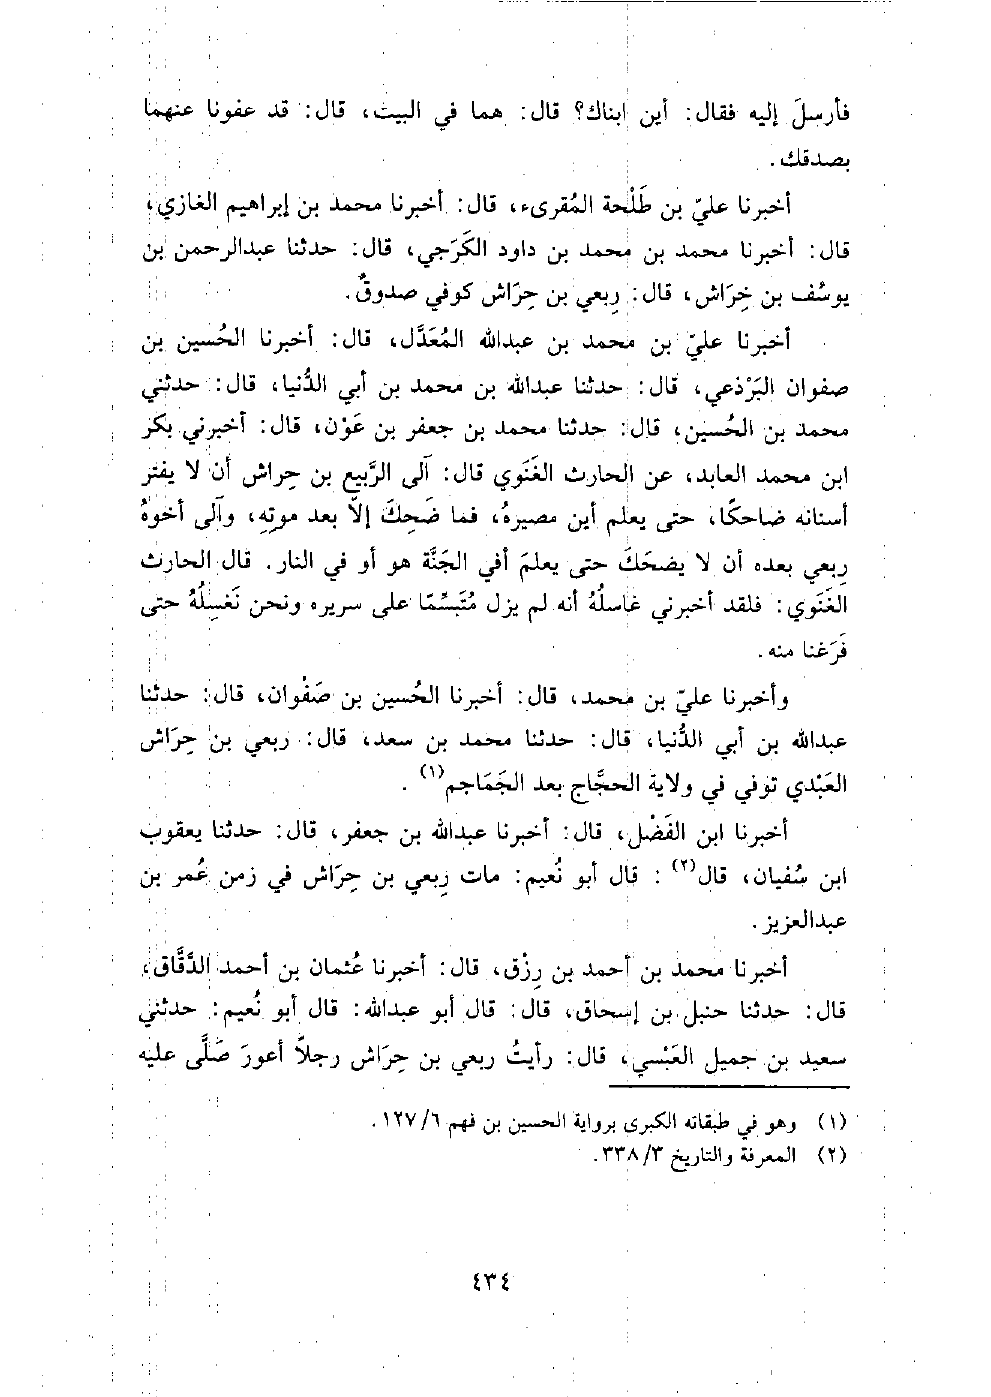 فأرسلَ إليه فقال: أين ابناك؟ قال: هما في البيت، قال: قد عفونا عنهما
بصدقك.
أخبرنا عليّ بن طَلْحة المُقرىء، قال: أخبرنا محمد بن إبراهيم الغازي،
قال: أخبرنا محمد بن محمد بن داود الكَرَجي، قال: حدثنا عبدالرحمن بن
يوسُف بن خِرَاش، قال: رِبعي بن حِرَاش كوفي صدوقٌ.
أخبرنا عليّ بن محمد بن عبدالله المُعَدَّل، قال: أخبرنا الحُسين بن
صفوان البَرْذعي، قال: حدثنا عبدالله بن محمد بن أبي الدُّنيا، قال: حدثني
محمد بن الحُسين، قال: حدثنا محمد بن جعفر بن عَوْن، قال: أخبرني بكر
ابن محمد العابد، عن الحارث الغَنَوي قال: آلى الرَّبيع بن حِراش أن لا يفتر
أسنانه ضاحكًا، حتى يعلم أين مصيرهُ، فما ضَحِكَ إلاّ بعد موتِهِ، وآلى أخوهُ
رِبعي بعده أن لا يضحَكَ حتى يعلمَ أفي الجَنَّة هو أو في النار. قال الحارث
الغَنَوي: فلقد أخبرني غاسلُهُ أنه لم يزل مُتَبسِّمًا على سريره ونحن نَغسِلُهُ حتى
فَرَغنا منه.
وأخبرنا عليّ بن محمد، قال: أخبرنا الحُسين بن صَفْوان، قال: حدثنا
عبدالله بن أبي الدُّنيا، قال: حدثنا محمد بن سعد، قال: ربعي بن حِرَاش
العَبْدي توفي في ولاية الحجَّاج بعد الجَمَاجم(١) .
أخبرنا ابن الفَضْل، قال: أخبرنا عبدالله بن جعفر، قال: حدثنا يعقوب
ابن سُفيان، قال(٢) : قال أبو نُعيم: مات رِبعي بن حِرَاش في زمن عُمر بن
عبدالعزيز.
أخبرنا محمد بن أحمد بن رِزْق، قال: أخبرنا عُثمان بن أحمد الدَّقَّاق،
قال: حدثنا حنبل بن إسحاق، قال: قال أبو عبدالله: قال أبو نُعيم: حدثني
سعيد بن جميل العَبْسي، قال: رأيتُ ربعي بن حِرَاش رجلاً أعورَ صَلَّى عليه
(١) وهو في طبقاته الكبرى برواية الحسين بن فهم ٦/ ١٢٧.
(٢) المعرفة والتاريخ ٣/ ٣٣٨.
٤٣٤